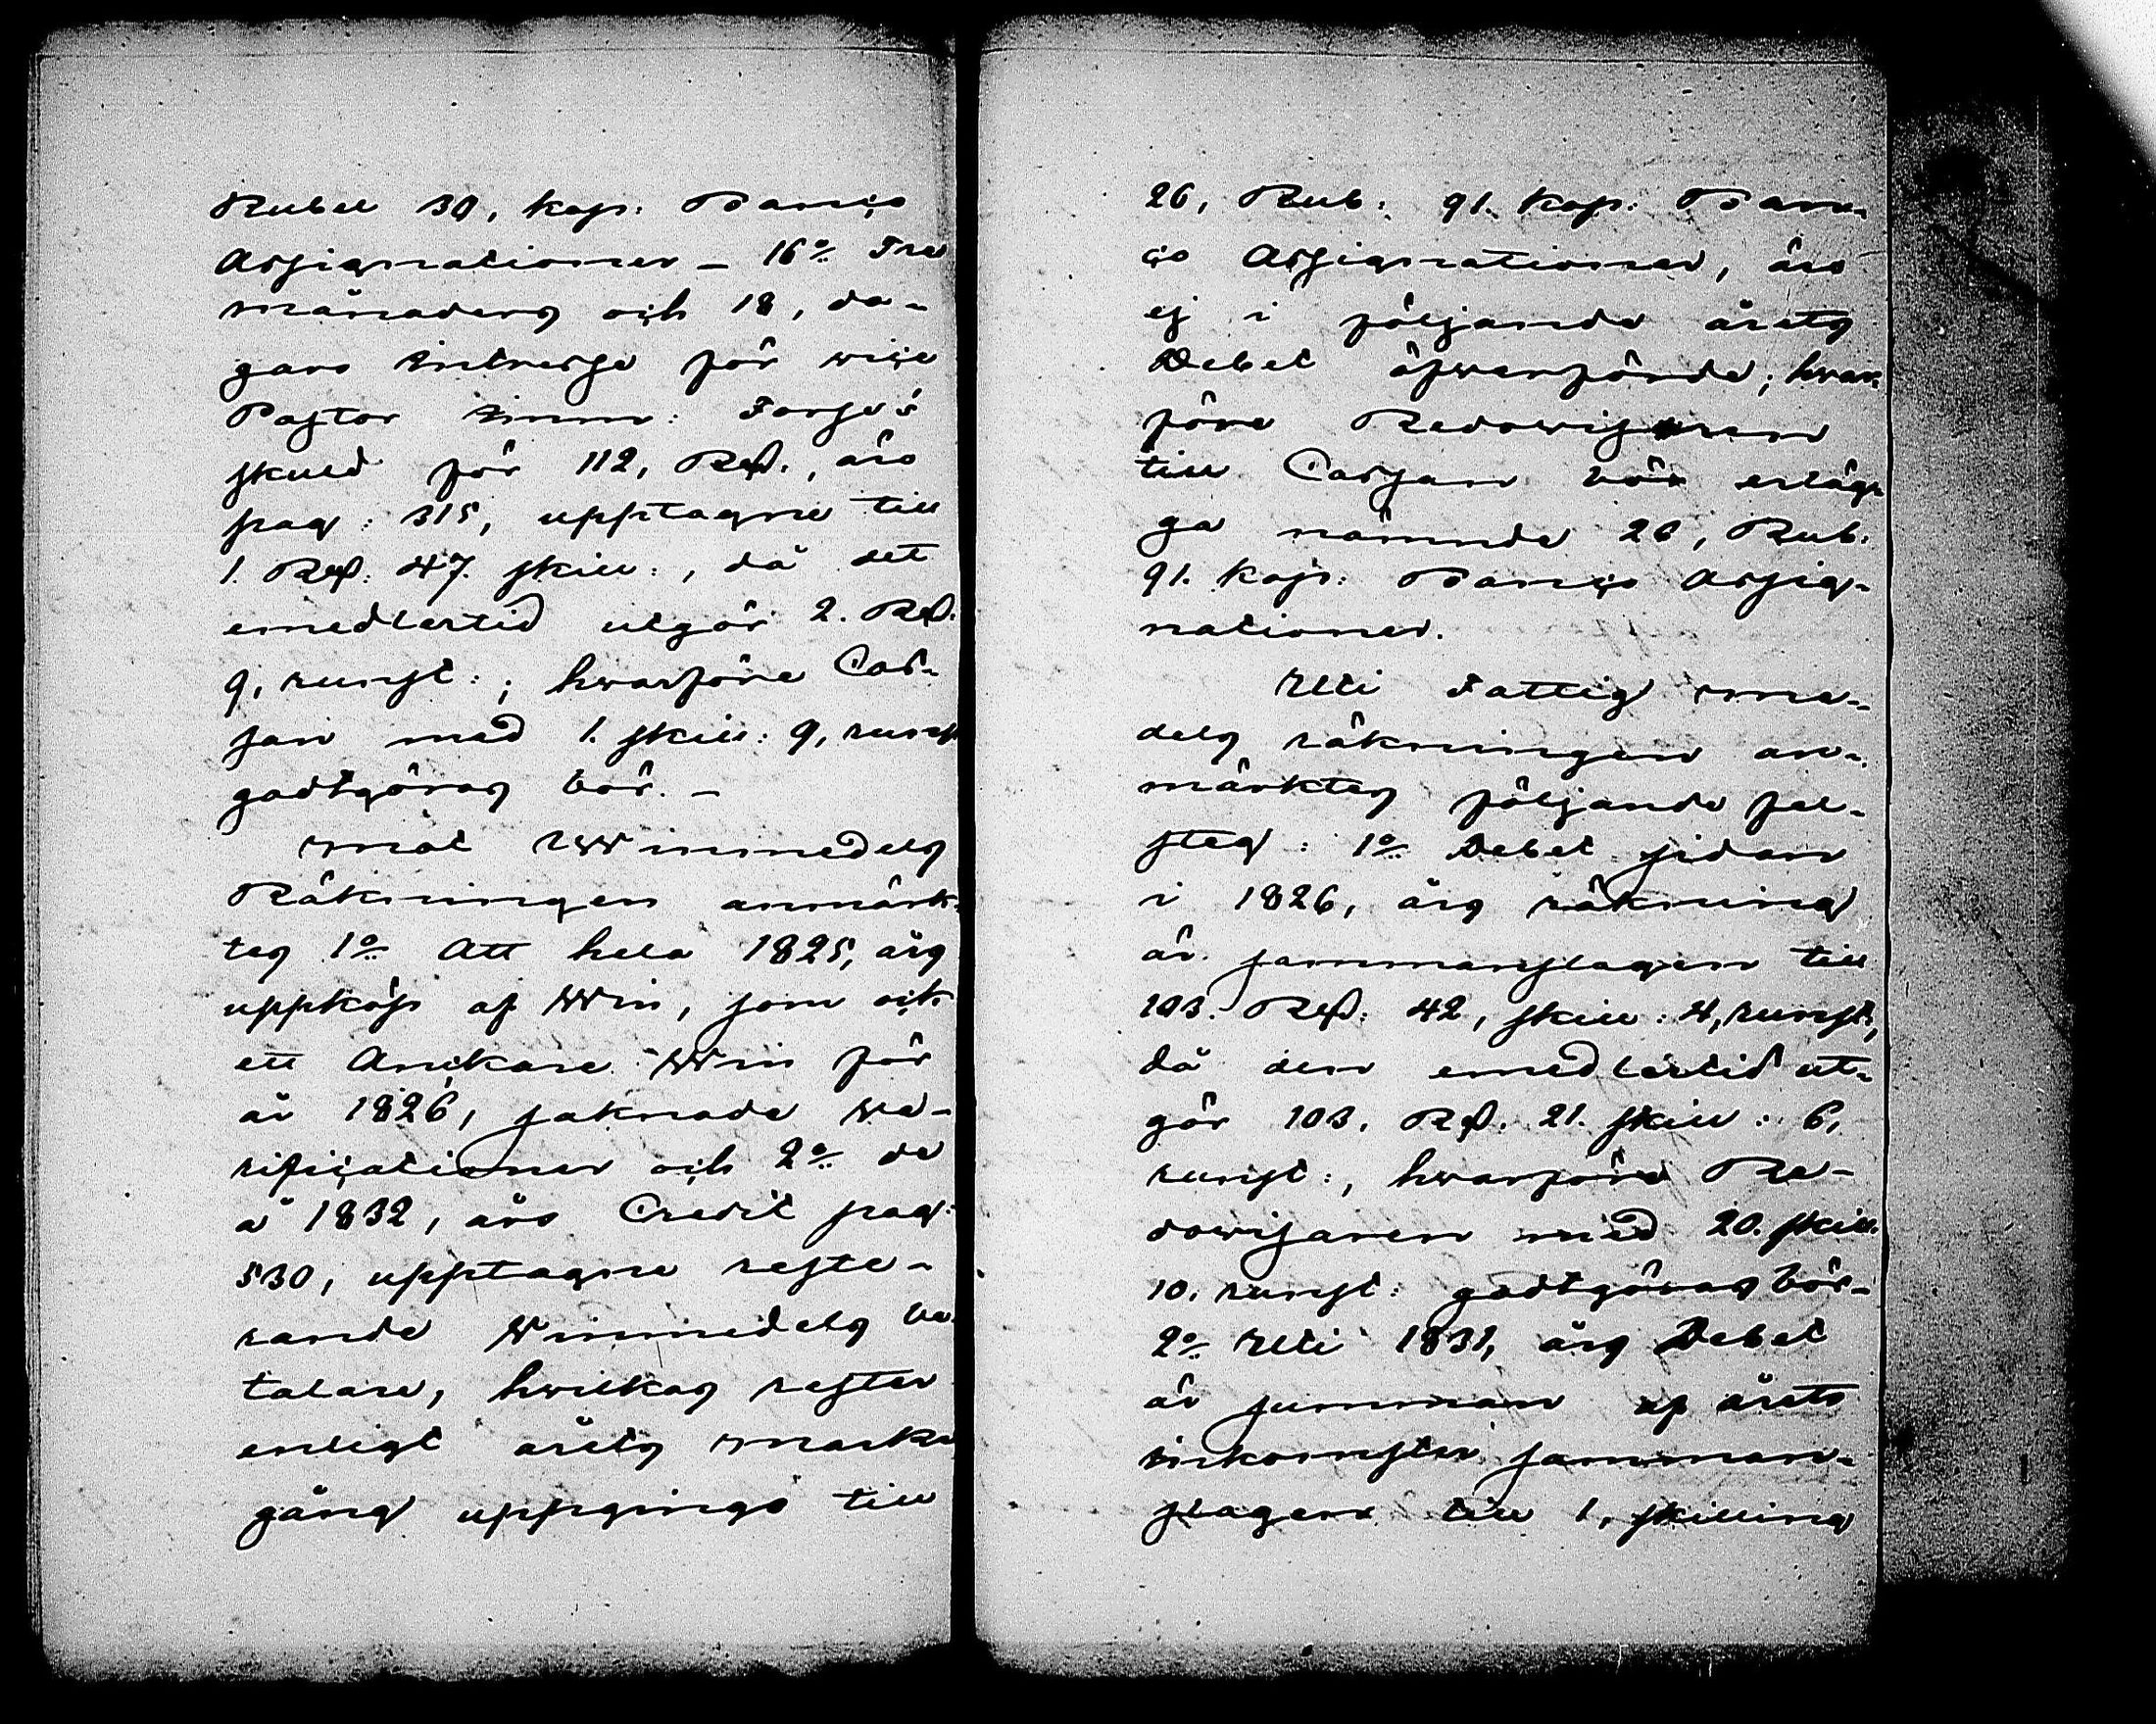 Rubel 30, kop: Banco
Assignationer – 16:o Tre
månaders och 18, da-
gars Intresse för vice
Pastor Imm: Forss's
skuld för 112, Rß., äro
pag: 315, upptagne till
1. Rß: 47. skill:, då det
emedlertid utgör 2. Rß.
9, runst:; hvarföre Cas-
san med 1. skill: 9, runst
godtgöras bör. –
Mot Winmedels
Räkningen anmärk-
tes 1:o Att hela 1825, års
uppköp af Win, som ock
ett Anckare Win för
år 1826, saknade ve-
rificationer och 2:o de
å 1832, års Credit pag:
530, upptagne reste-
rande Winmedels be
talare, hvilkas rester
enligt årets marke
gång uppgingo till
26, Rub: 91. kop: Ban-
co Assignationer, äro
ej i följande årets
Debet öfverförde; hvar-
före Redovisaren
till Cassan bör erläg-
ga nämnde 26, Rub.
91. kop: Banco Assig-
nationer.
Uti Fattig me-
dels räkningen an-
märktes följande fel-
steg: 1:o Debet sidan
i 1826, års räkning
är sammanslagen till
103. Rß: 42, skill: 4, runst:,
då den emedlertid ut-
gör 103. Rß. 21. skill: 6,
runst:, hvarföre Re-
dovisaren med 20. skill.
10. runst: godtgöras bör-
2:o Uti 1831, års Debet
är summan af årets
inkomster samman-
slagen till 1, skilling